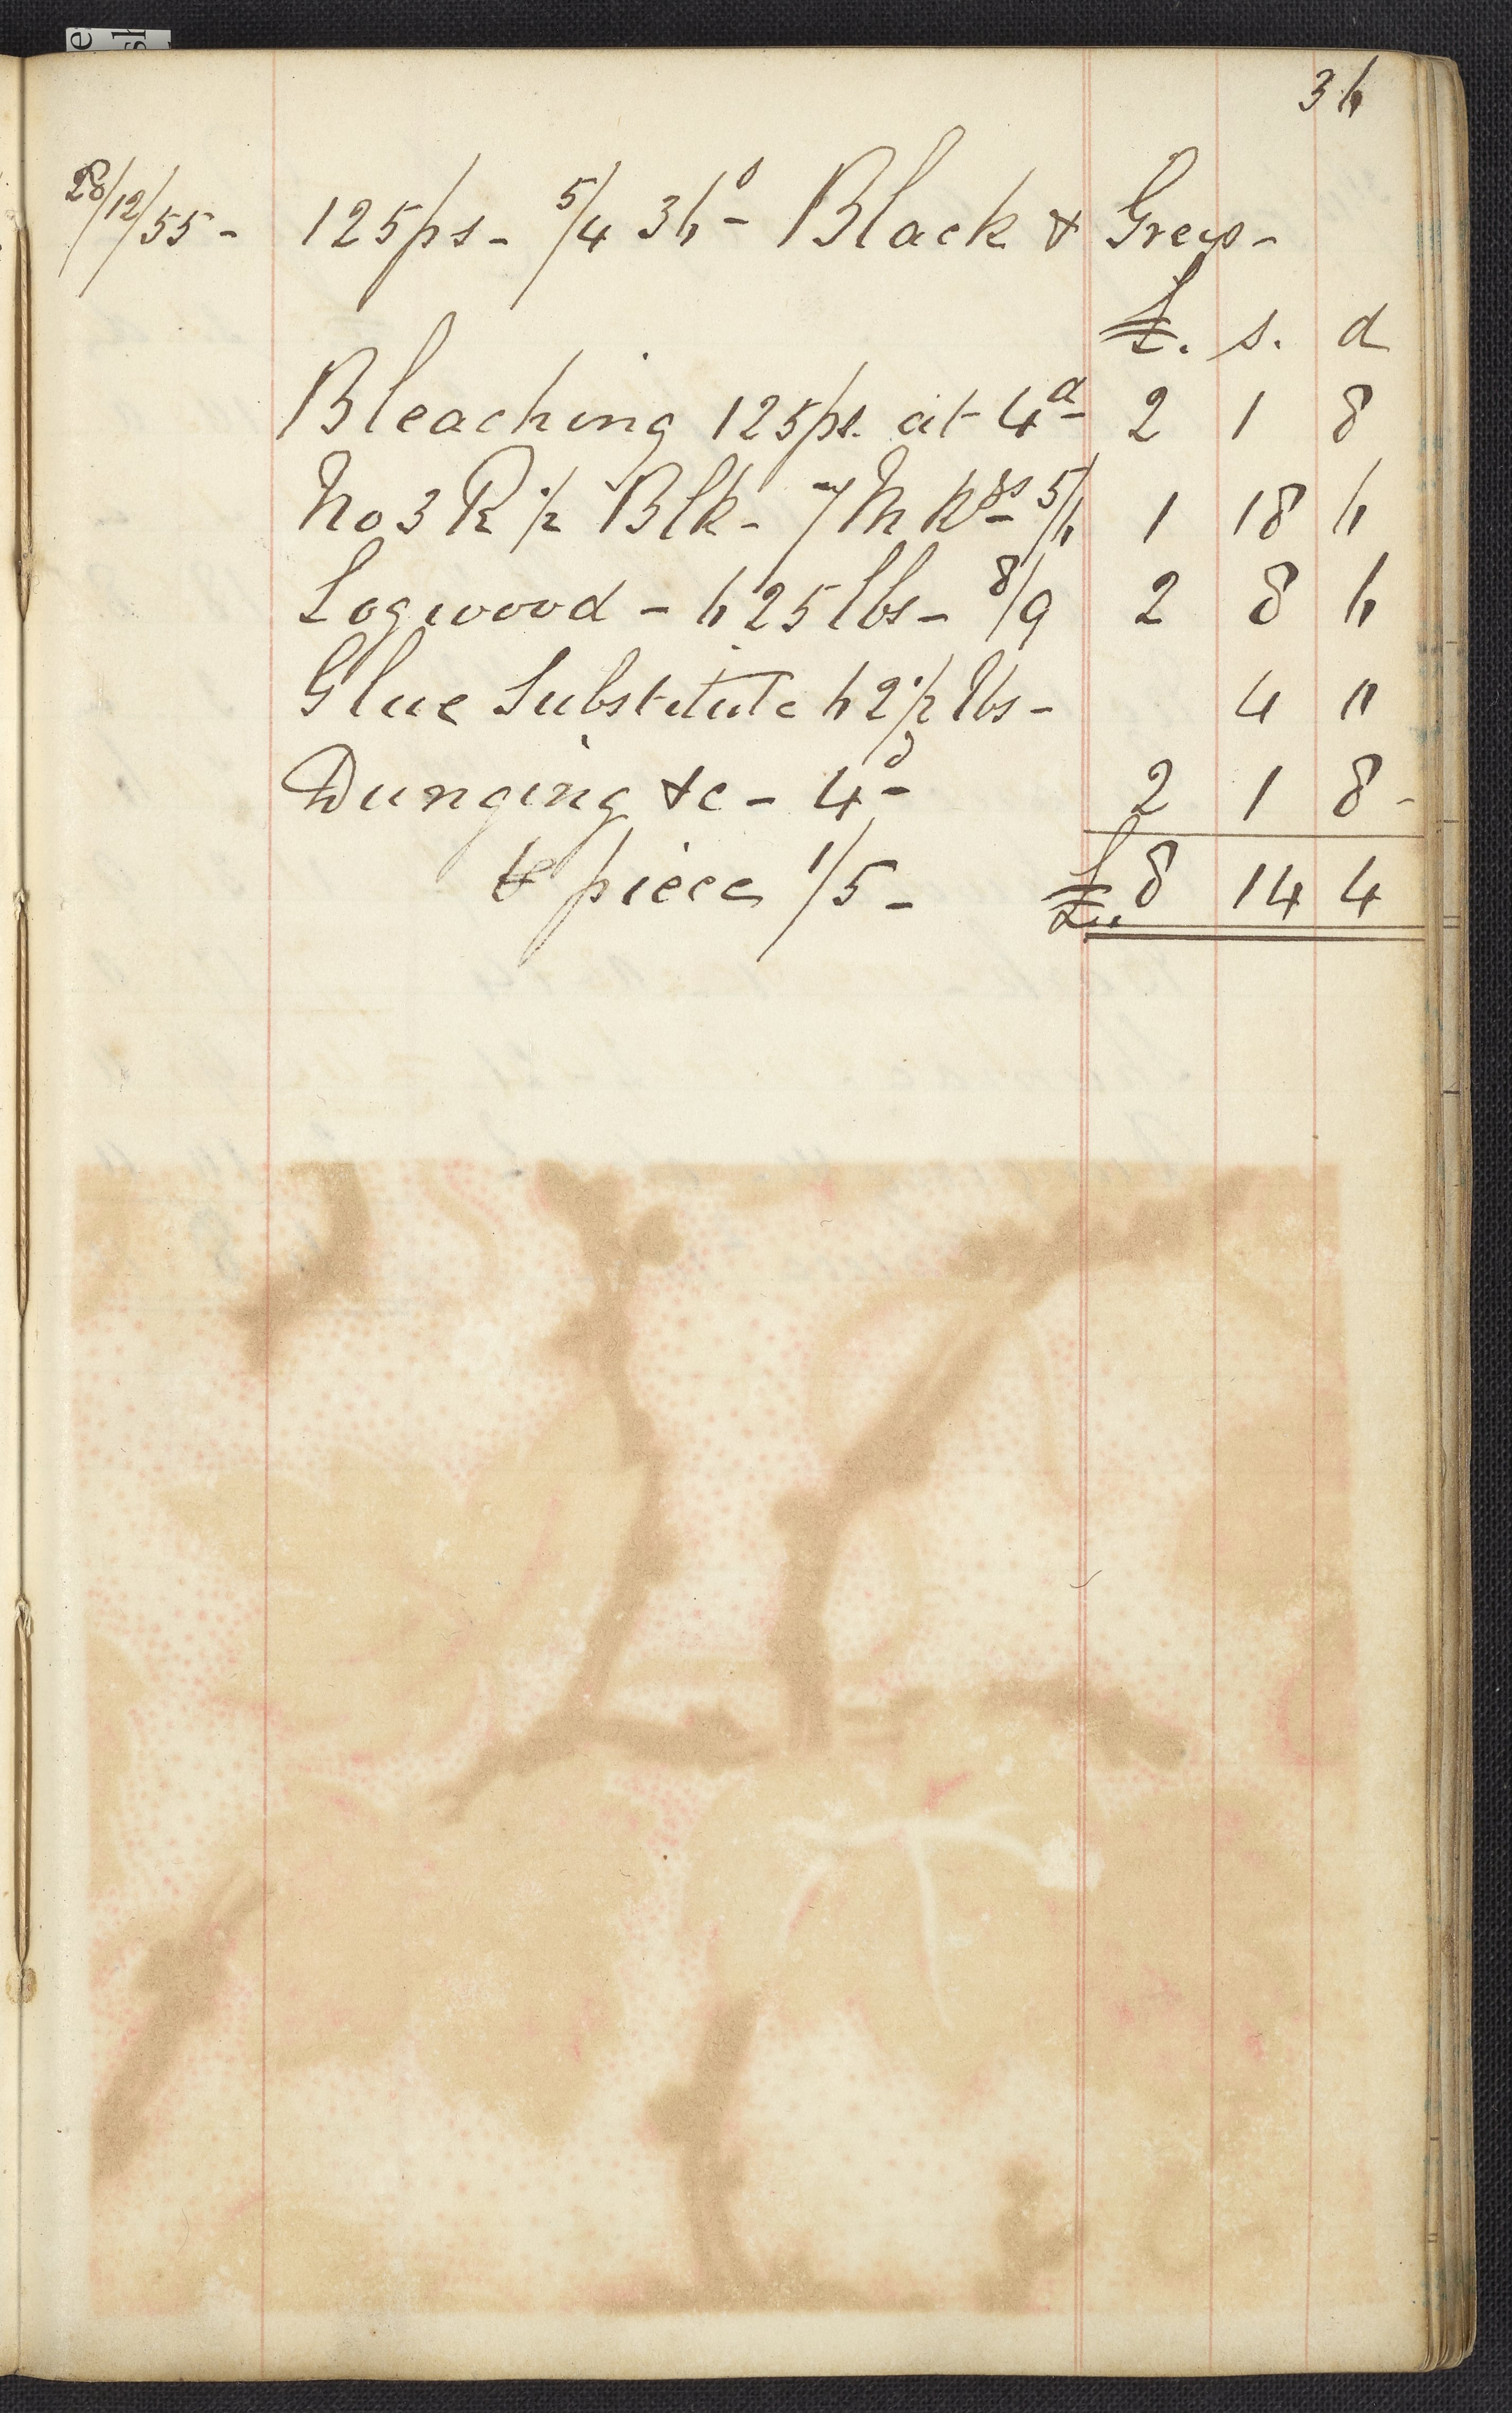 36
28/12/55 - 125ps - 5/4 36s - Black & Greys -
£. s. d
Bleaching 125ps. at 4d 2 1 8
No 3 R ½ Blk - 7 5/6 1 18 6
Logwood - 625 lbs - 8/9 2 8 6
Glue Substitute 62½ lbs - 4 "
Dunging &c - 4d 2 1 8 -
piece 1/5 - £ 8 14 4